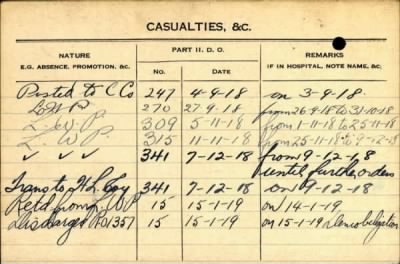 CASUALTIES, &C.
NATURE PART II. D. O. REMARKS
E.G. ABSENCE, PROMOTION, &C. No. DATE IF IN HOSPITAL, NOTE NAME, &C;
Posted to C Co. 247 4-9-18 on 3-9-18.
L.W.P. 270 27.9.18 from 26-9-18 to 31-10-18
L.W.P. 309 5-11-18 from 1-11-18 to 25-11-18
L.W.P. 315 11-11-18 from 25-11-18 to 9-2-18
✓ ✓ ✓ 341 7-12-18 from 9-12-18
until further orders
Trans to H L Coy 341 7-12-18 on 9-12-18
Retd from L.WP 15 15-1-19 on 14-1-19
Discharged RO1357 15 15-1-19 on 15-1-19 Demobilization